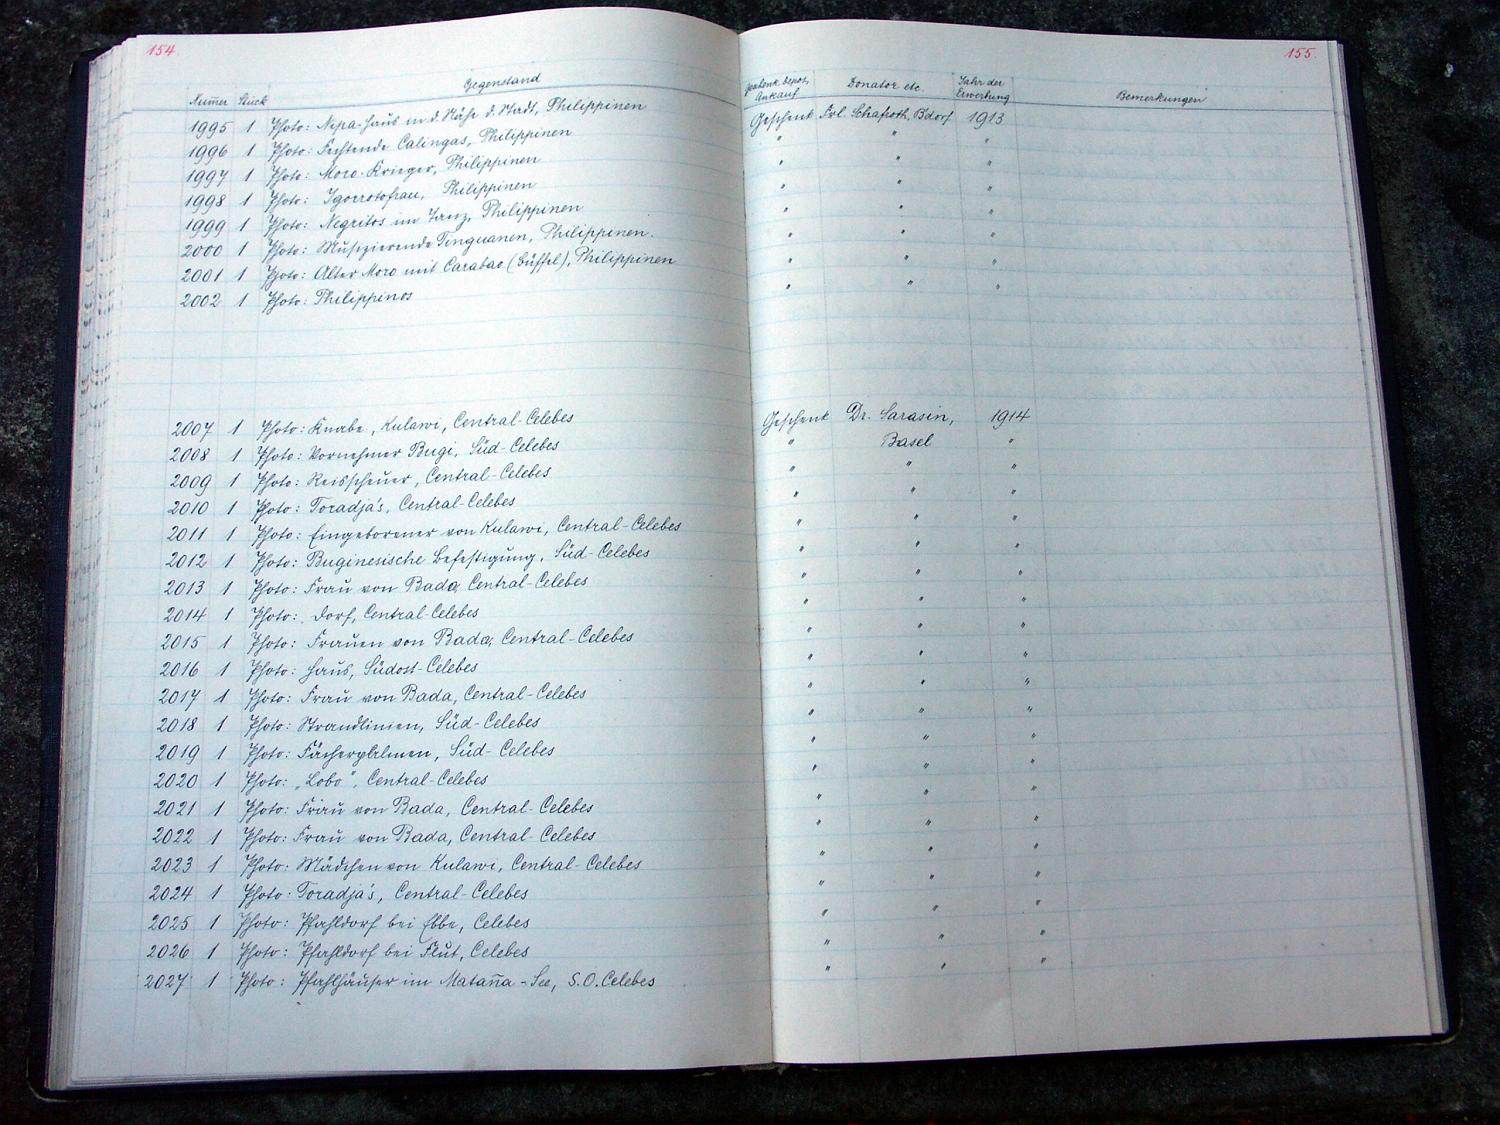 154
155
Numer Stück Gegenstand Geschenk, Depot, Ankauf Donator etc. Jahr der Erwerbung Bemerkungen
1995 1 Photo: Nipa-Haus in d. Nähe d. Stadt, Philippinen Geschenk Frl. Schafroth, Bdorf 1913
1996 1 Photo: Fechtende Calingas, Philippinen " " "
1997 1 Photo: Moro-Krieger, Philippinen " " "
1998 1 Photo: Igorrotofrau, Philippinen " " "
1999 1 Photo: Negritos im Tanz, Philippinen " " "
2000 1 Photo: Musizierende Tinguanen, Philippinen. " " "
2001 1 Photo: Alter Moro mit Carabao (Büffel), Philippinen " " "
2002 1 Photo: Philippinos " " "
2007 1 Photo: Knabe, Kulawi, Central-Celebes Geschenk Dr. Sarasin, 1914
2008 1 Photo: Vornehmer Bugi, Süd-Celebes " Basel "
2009 1 Photo: Reisscheuer, Central-Celebes " " "
2010 1 Photo: Toradja's, Central-Celebes " " "
2011 1 Photo: Eingeborener von Kulawi, Central-Celebes " " "
2012 1 Photo: Buginesische Befestigung, Süd-Celebes " " "
2013 1 Photo: Frau von Bada, Central-Celebes " " "
2014 1 Photo: Dorf, Central-Celebes " " "
2015 1 Photo: Frauen von Bada, Central-Celebes " " "
2016 1 Photo: Haus, Südost-Celebes " " "
2017 1 Photo: Frau von Bada, Central-Celebes " " "
2018 1 Photo: Strandlinien, Süd-Celebes " " "
2019 1 Photo: Fächerpalmen, Süd-Celebes " " "
2020 1 Photo: „Lobo", Central-Celebes " " "
2021 1 Photo: Frau von Bada, Central-Celebes " " "
2022 1 Photo: Frau von Bada, Central-Celebes " " "
2023 1 Photo: Mädchen von Kulawi, Central-Celebes " " "
2024 1 Photo: Toradja's, Central-Celebes " " "
2025 1 Photo: Pfahldorf bei Ebbe, Celebes " " "
2026 1 Photo: Pfahldorf bei Flut, Celebes " " "
2027 1 Photo: Pfahlhäuser im Matana-See, S.O. Celebes " " "